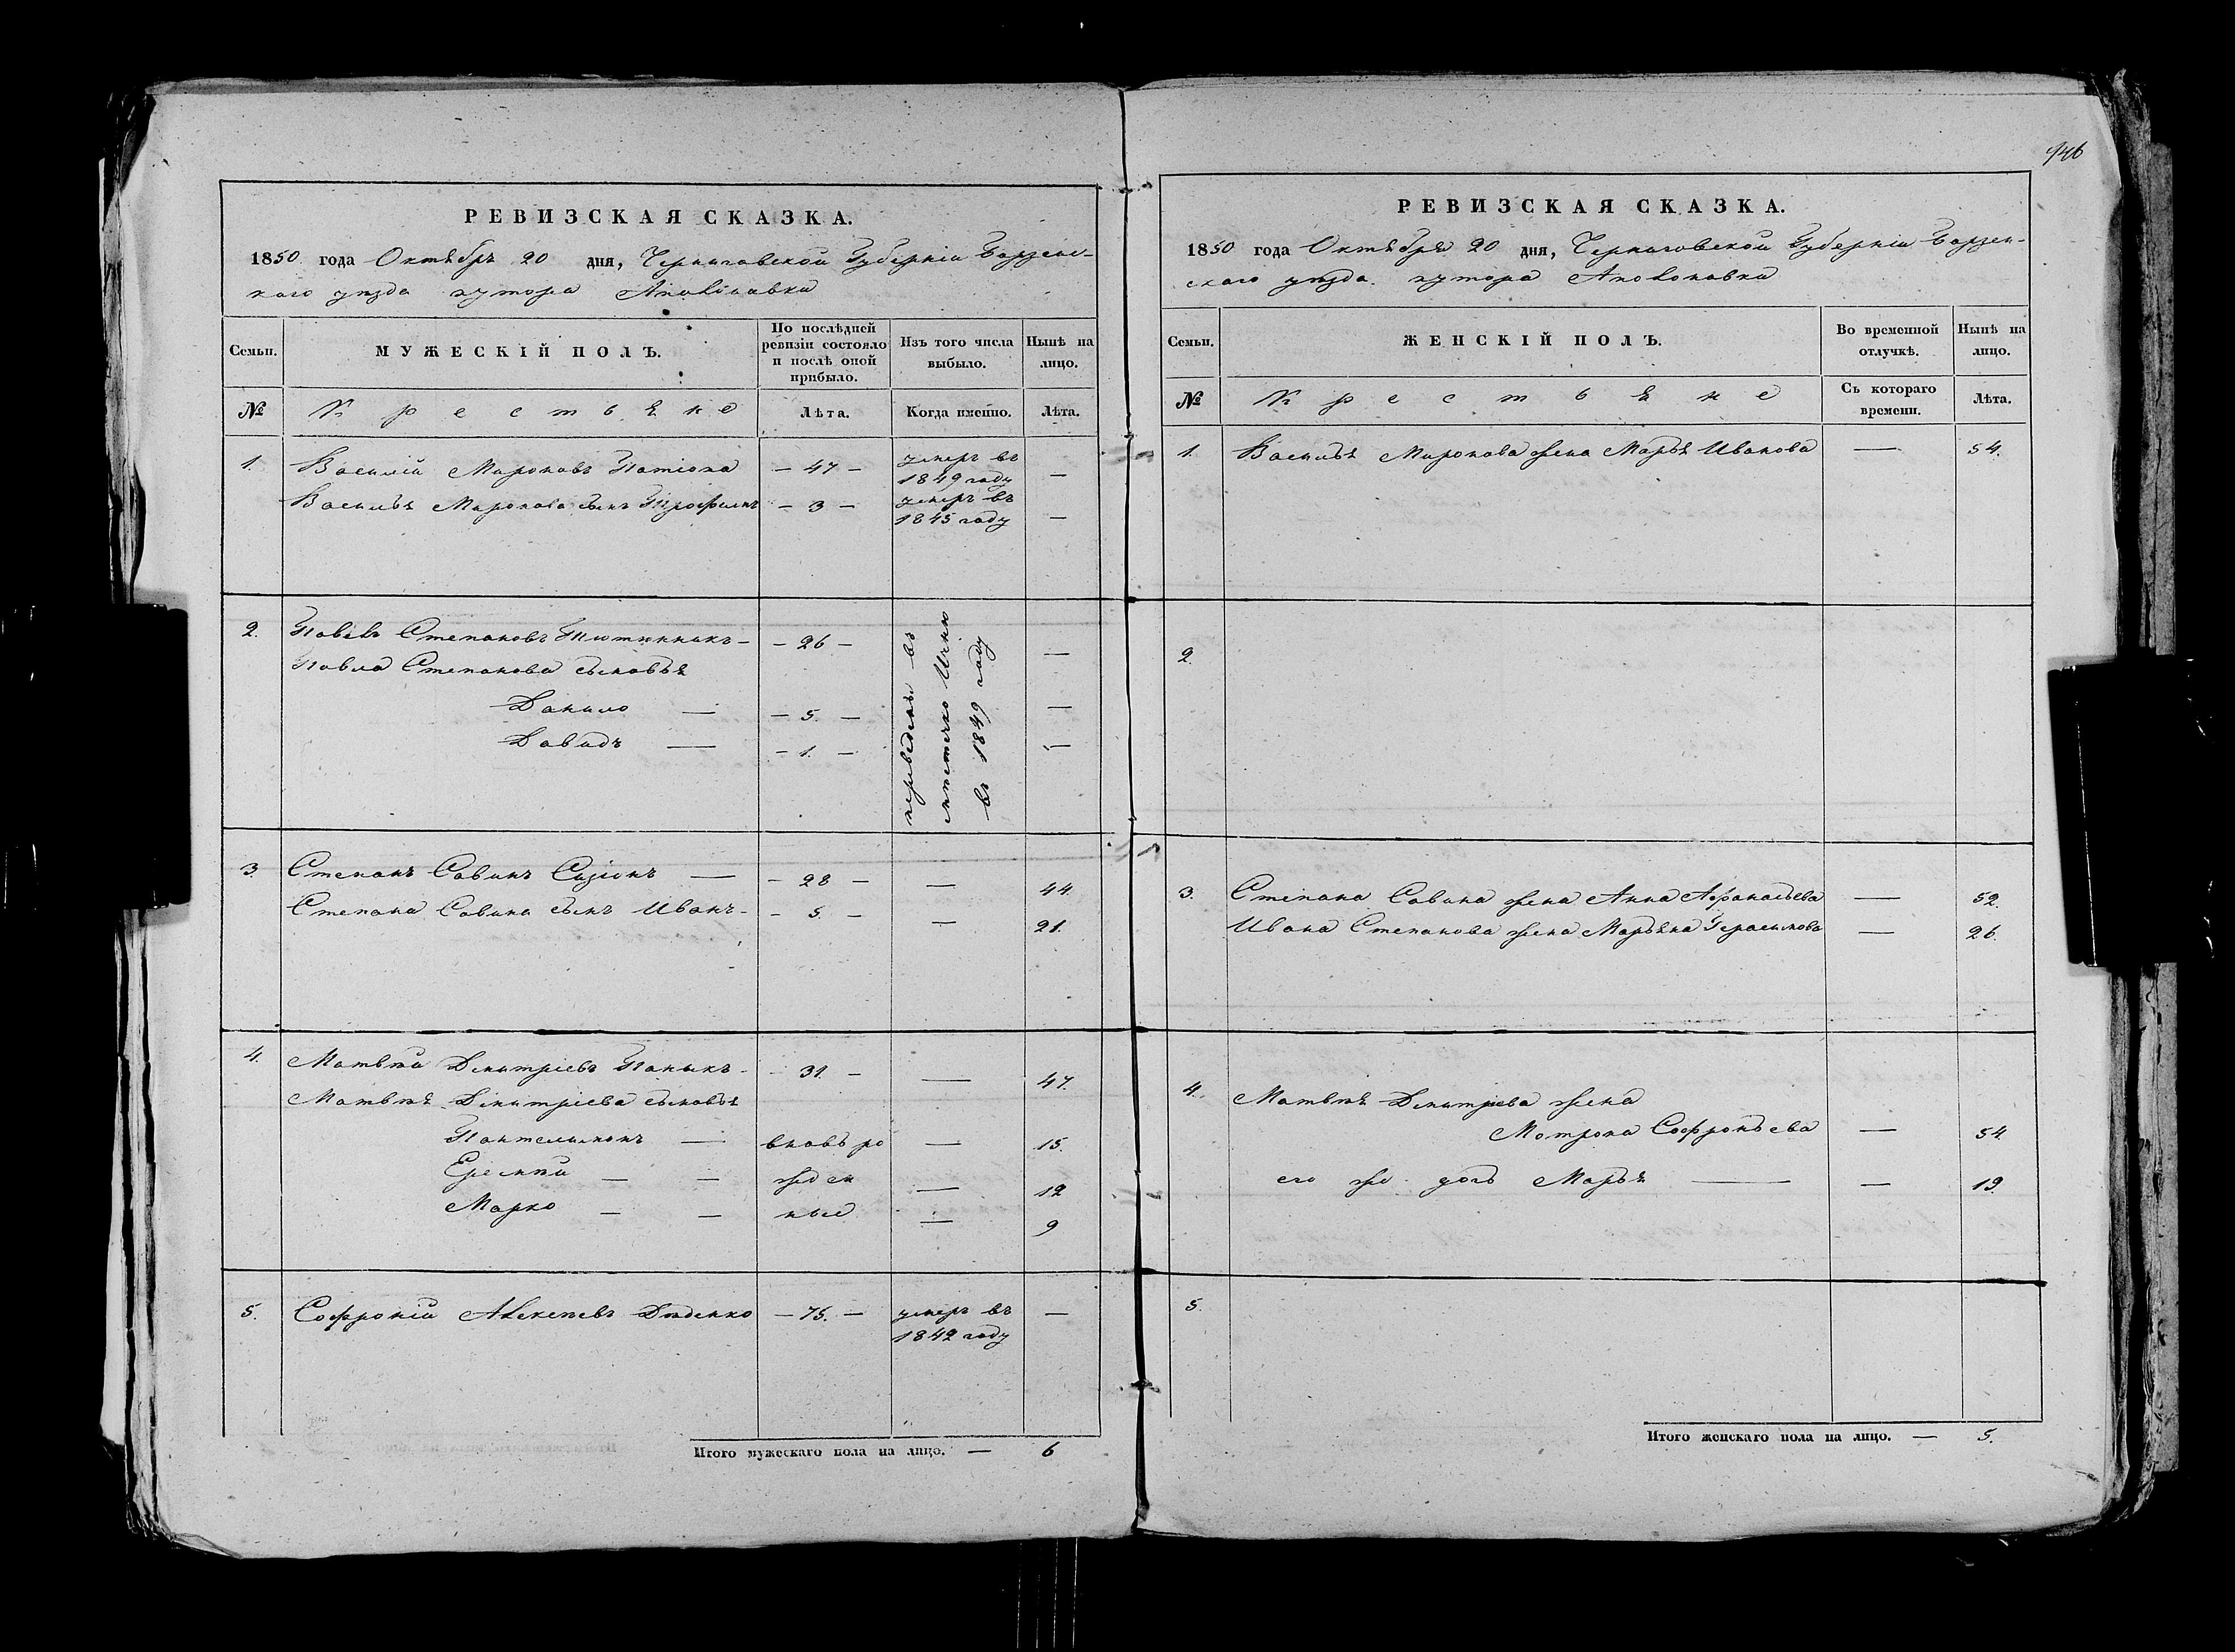 946
РЕВИЗСКАЯ СКАЗКА.
1850 года Октября 20 дня, Черниговской Губерніи Борзенс-
каго уезда хутора
Семьи.
МУЖЕСКІЙ ПОЛЪ.
По послѣдней ревизіи состояло и послѣ оной прибыло.
Изъ того числа выбыло.
Нынѣ на лицо.
№
Крестьяне
Лѣта.
Когда именно.
Лѣта.
1. Василій Мироновъ — 47 — умеръ въ 1849 году —
Василья Миронова сынъ Трофимъ — 3 — умеръ въ 1845 году —
2. Павелъ Степановъ Тютюнникъ — — 26 — —
Павла Степанова сыновья
Данило — — 5. — —
Давидъ — — 1. — —
переведены въ местечко Ичню въ 1849 году
3. Степанъ Савинъ — — 28 — — 44.
Степана Савина сынъ Иванъ — — 5. — — 21.
4. Матвей Дмитріевъ — 31. — — 47.
Матвея Дмитріева сыновья
Пантелимонъ — вновь ро — 15.
Еремей — — жден — 12
Марко — — ные — 9
5. Софроній Алексеевъ Деденко — 75. — умеръ въ 1842 году —
Итого мужескаго пола на лицо. — 6
РЕВИЗСКАЯ СКАЗКА.
1850 года Октября 20 дня, Черниговской Губерніи Борзен-
скаго уезда. хутора
Семьи.
ЖЕНСКІЙ ПОЛЪ.
Во временной отлучкѣ.
Нынѣ на лицо.
№
Крестьяне
Съ котораго времени.
Лѣта.
1. Василья Миронова жена Марья Иванова — 54.
2.
3. Степана Савина жена Анна Афанасьева — 52.
Ивана Степанова жена Марьяна Герасимова — 26.
4. Матвея Дмитріева жена
Мотрона Софроньева — 54.
его же дочь Марья — — 19.
5.
Итого женскаго пола на лицо. — 5.